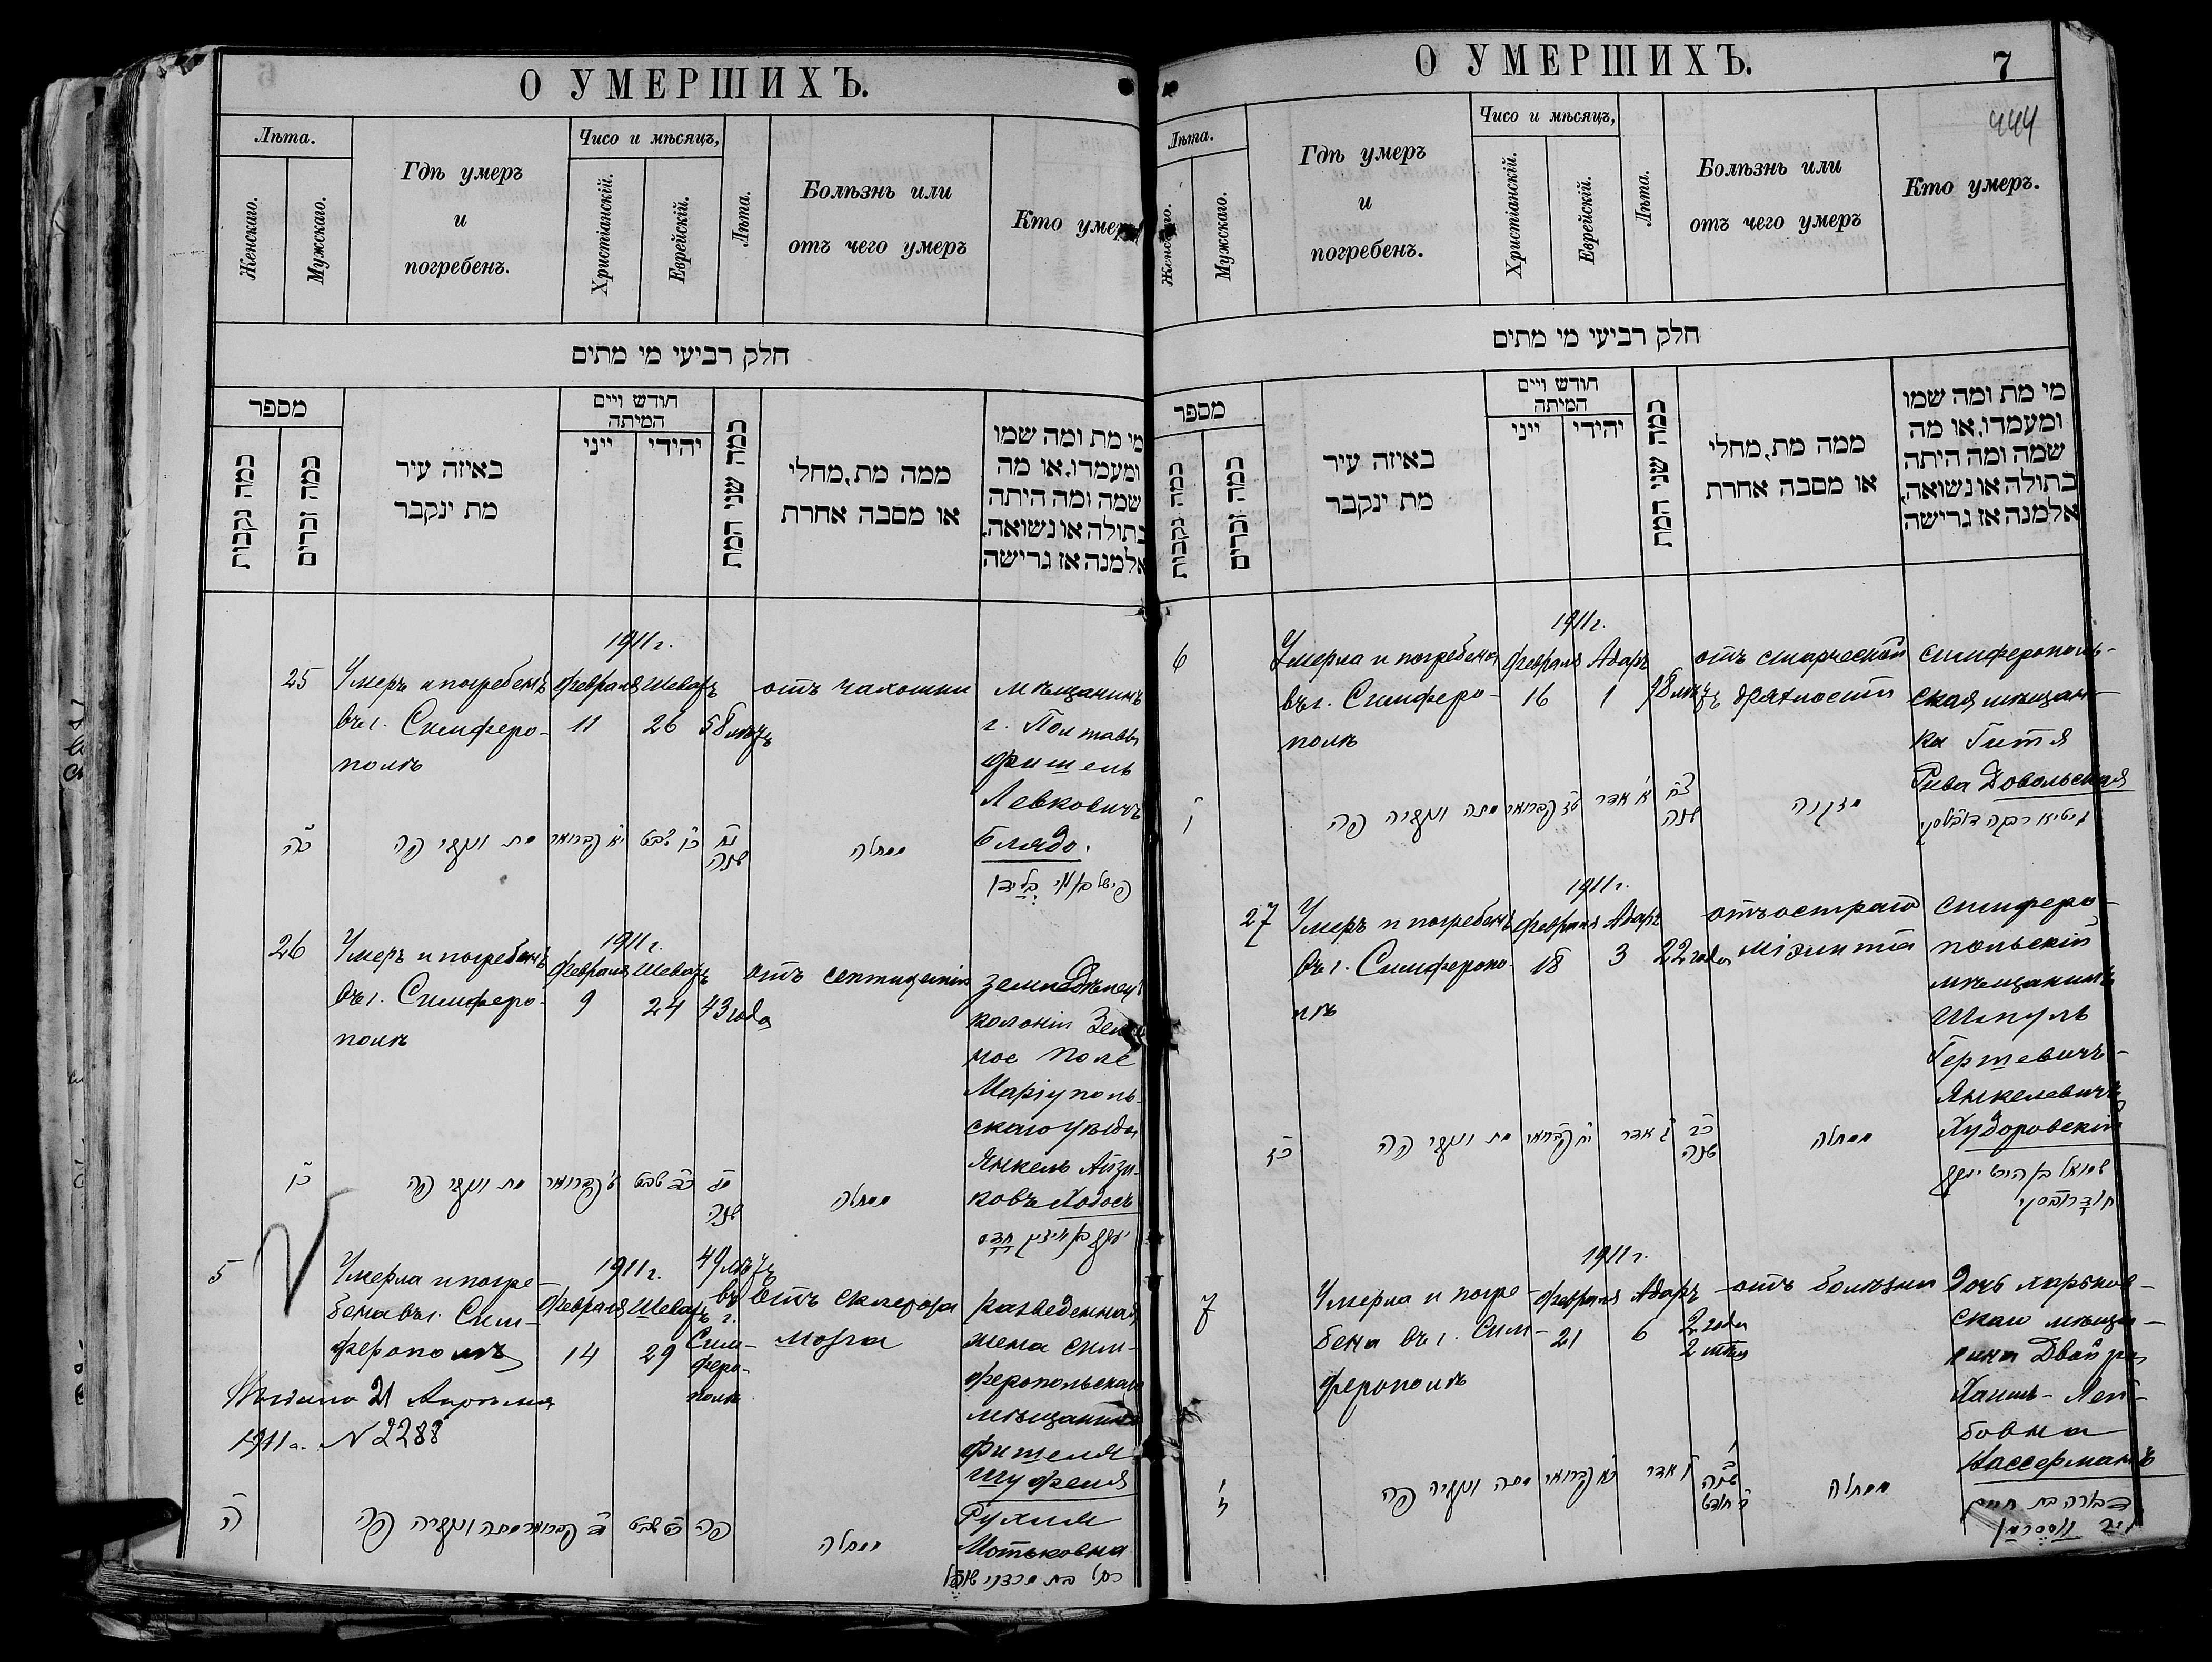 О УМЕРШИХЪ.
Лѣта.
Женскаго.
Мужскаго.
Гдѣ умеръ
и
погребенъ.
Чисо и мѣсяцъ,
Христіанскій.
Еврейскій.
Лѣта.
Болѣзнь или
отъ чего умеръ
Кто умеръ
חלק רביעי מי מתים
מספר
כמה נקבות
כמה זכרים
באיזה עיר
מת ינקבר
חודש ויים
המיתה
ייני
יהידי
כמה שני המת
ממה מת, מחלי
או מסבה אחרת
מי מת ומה שמו
ומעמדו, או מה
שמה ומה היתה
בתולה או נשואה,
אלמנה אז גרישה
25
Умеръ и погребенъ
въ г. Симферо-
полѣ
1911 г.
Февраля Шеватъ
11 26
58 лѣтъ
отъ чахотки
мѣщанинъ
г. Полтавы
Фишель
Левковичъ
Блядо.
כה
מת ונקבר פה
יא פברואר
כו שבט
נח
שנה
ממחלה
26
Умеръ и погребенъ
въ г. Симферо-
полѣ
1911 г.
Февраля Шеватъ
9 24
43 года
отъ септицеміи
земледѣлецъ
колоніи
ное поле
Маріуполь-
скаго уѣзда
Янкель Айзи-
ковъ Ходосъ
כו
מת ונקבר פה
ט פברואר
כד שבט
מג
שנה
ממחלה
5
Умерла и погре-
бена въ г. Сим-
ферополѣ
1911 г.
Февраля Шеватъ
14 29
49 лѣтъ
въ г.
Сим-
феро-
полѣ
отъ склероза
мозга
разведенная
жена сим-
феропольскаго
мѣщанина
Фишеля
Шуфеля
Рухля
Мотьковна
21 Апрѣля
1911 г. N 2288
ה
מתה ונקברה פה
יד פברואר
כט שבט
פה
ממחלה
О УМЕРШИХЪ.
7
444
Лѣта.
Женскаго.
Мужскаго.
Гдѣ умеръ
и
погребенъ.
Чисо и мѣсяцъ,
Христіанскій.
Еврейскій.
Лѣта.
Болѣзнь или
отъ чего умеръ
Кто умеръ.
חלק רביעי מי מתים
מספר
כמה נקבות
כמה זכרים
באיזה עיר
מת ינקבר
חודש ויים
המיתה
ייני
יהידי
כמה שני המת
ממה מת, מחלי
או מסבה אחרת
מי מת ומה שמו
ומעמדו, או מה
שמה ומה היתה
בתולה או נשואה,
אלמנה אז גרישה
6
Умерла и погребена
въ г. Симферо-
полѣ
1911 г.
Февраля Адаръ
16 1
98 лѣтъ
отъ старческой
дряхлости
симферополь-
ская мѣщан-
ка Гитя
Рива Довольская
ו
מתה ונקברה פה
טז פברואר
א אדר
צח
שנה
מזקנה
27
Умеръ и погребенъ
въ г. Симферопо-
лѣ
1911 г.
Февраля Адаръ
18 3
22 года
отъ остраго
міэлита
симферо-
польскій
мѣщанинъ
Шмуль
Гершевичъ-
Янкелевичъ
Худоровскій
כז
מת ונקבר פה
יח פברואר
ג אדר
כב
שנה
ממחלה
7
Умерла и погре-
бена въ г. Сим-
ферополѣ
1911 г.
Февраля Адаръ
21 6
2 года
2 мѣс
отъ болѣзни
дочь харьков-
скаго мѣща-
нина Двойра
Хаимъ-Лей-
бовна
Вассерманъ
ז
מתה ונקברה פה
כא פברואר
ו אדר
ממחלה
דבורה בת חיים